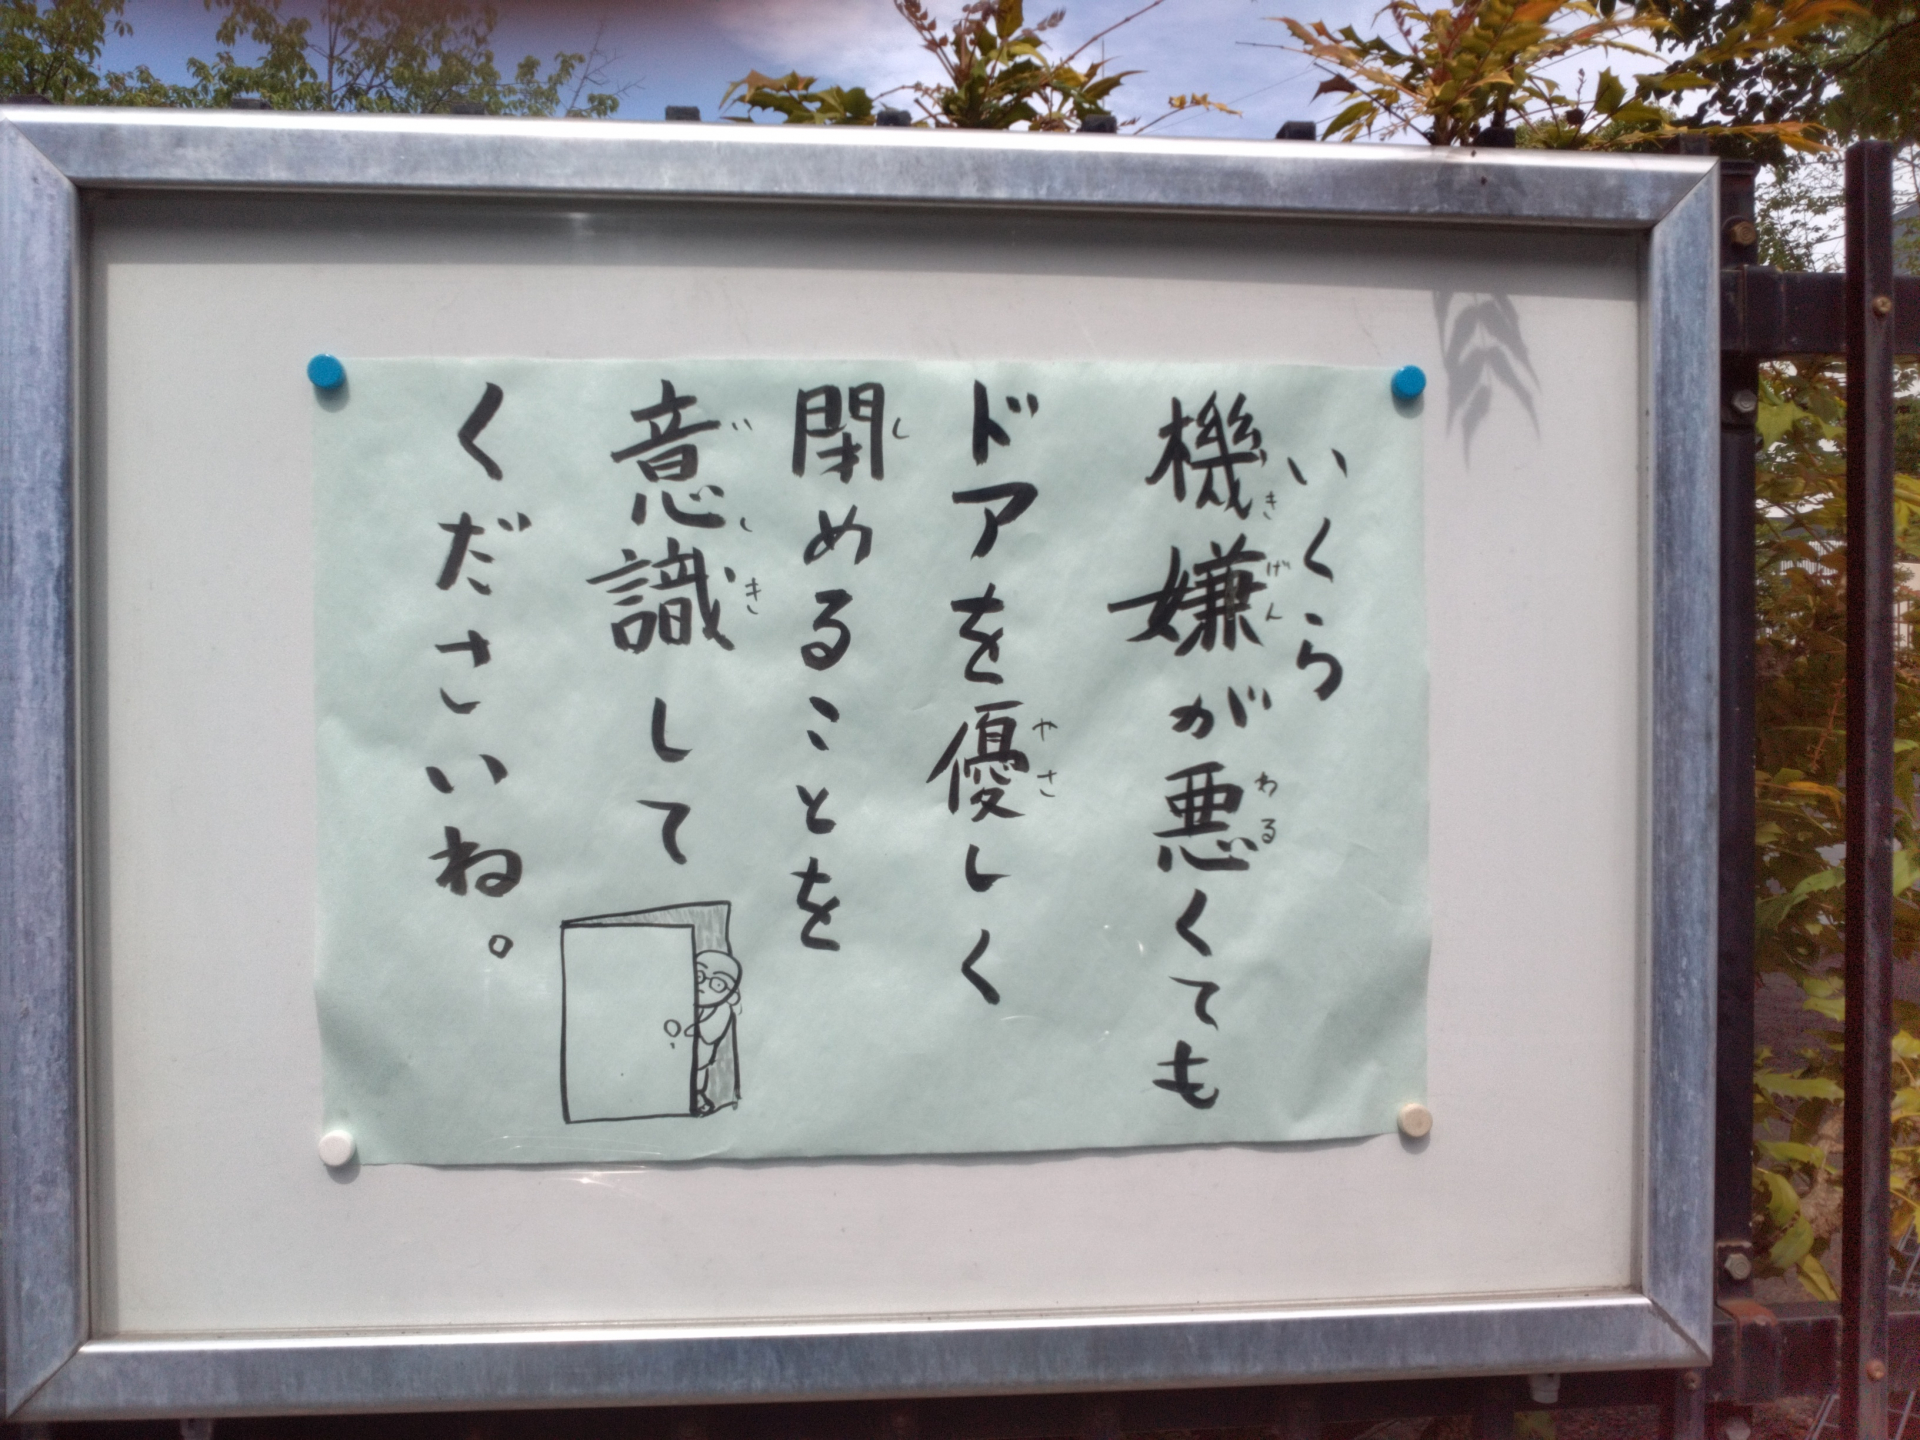 いくら
機嫌が悪くても
ドアを優しく
閉めることを
意識して
くださいね。